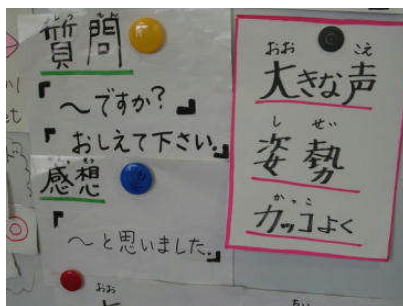 質問
「～ですか？」
「おしえて下さい。」
感想
「～と思いました。」
おお こえ
大きな声
しせい
姿勢
かっこ
カッコよく
おお